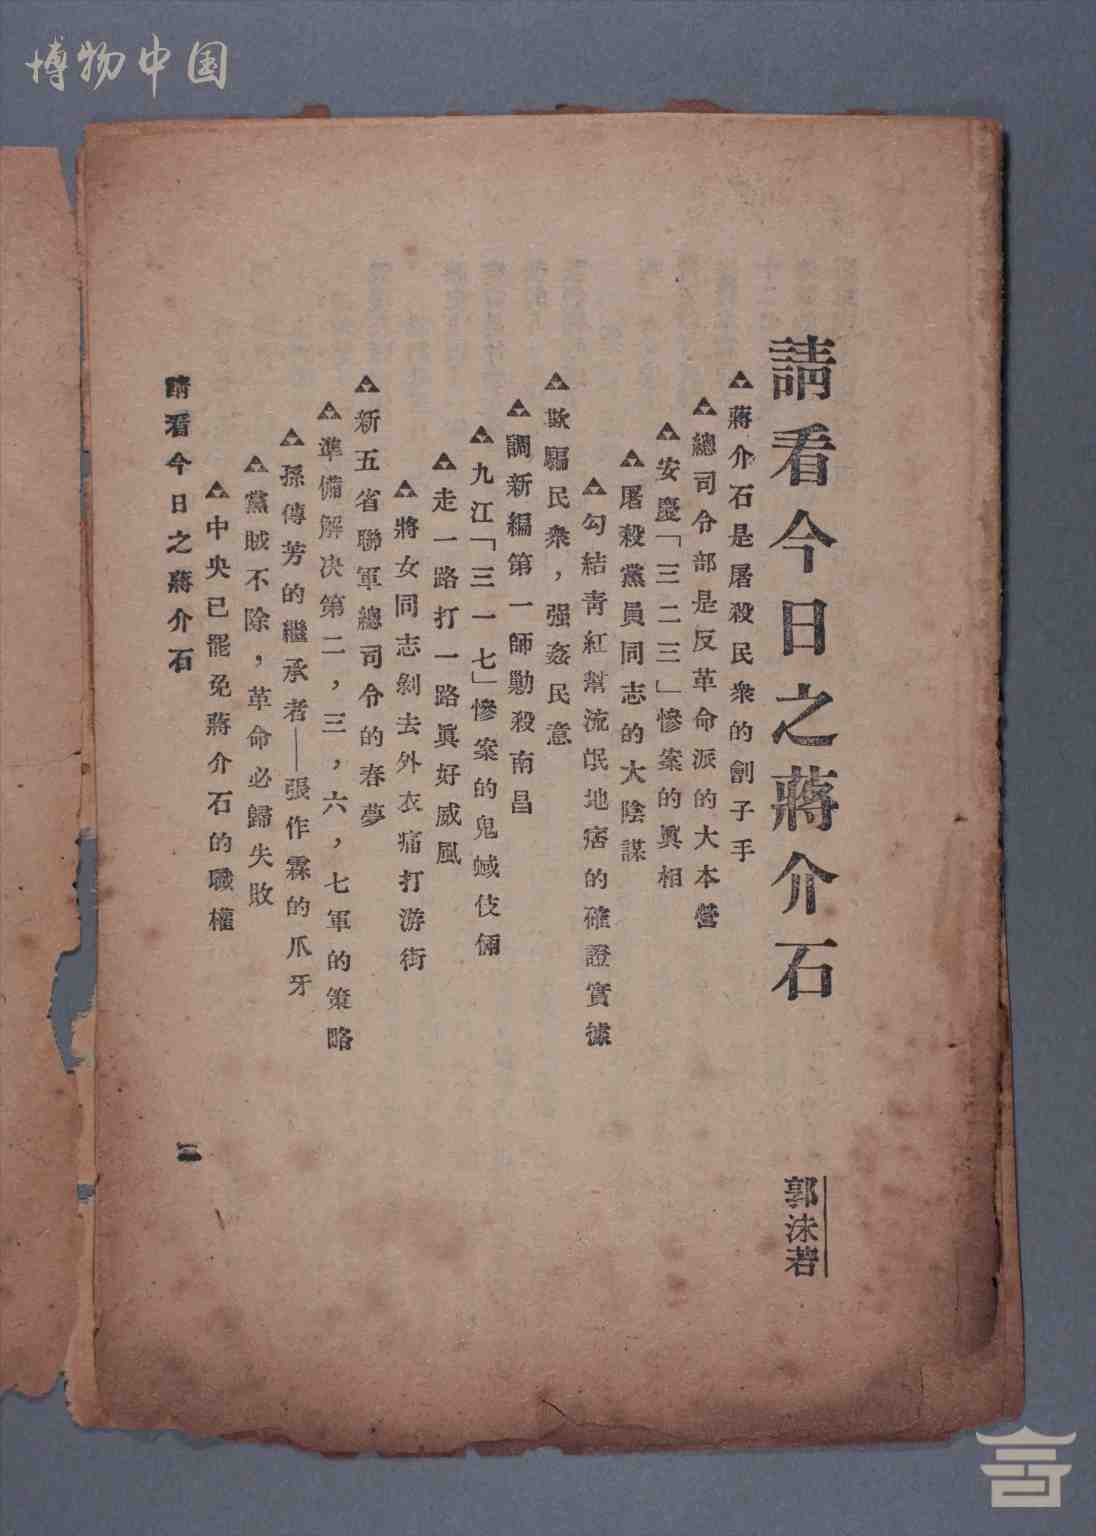 博物中国
請看今日之蔣介石
郭沫若
蔣介石是屠殺民衆的劊子手
總司令部是反革命派的大本營
安慶「三二三」慘案的眞相
屠殺黨員同志的大陰謀
勾結靑紅幫流氓地痞的確證實據
欺騙民衆，强姦民意
調新編第一師勦殺南昌
九江「三一七」慘案的鬼蜮伎倆
走一路打一路眞好威風
將女同志剝去外衣痛打游街
新五省聯軍總司令的春夢
準備解决第二，三，六，七軍的策略
孫傳芳的繼承者——張作霖的爪牙
黨賊不除，革命必歸失敗
中央已罷免蔣介石的職權
請看今日之蔣介石